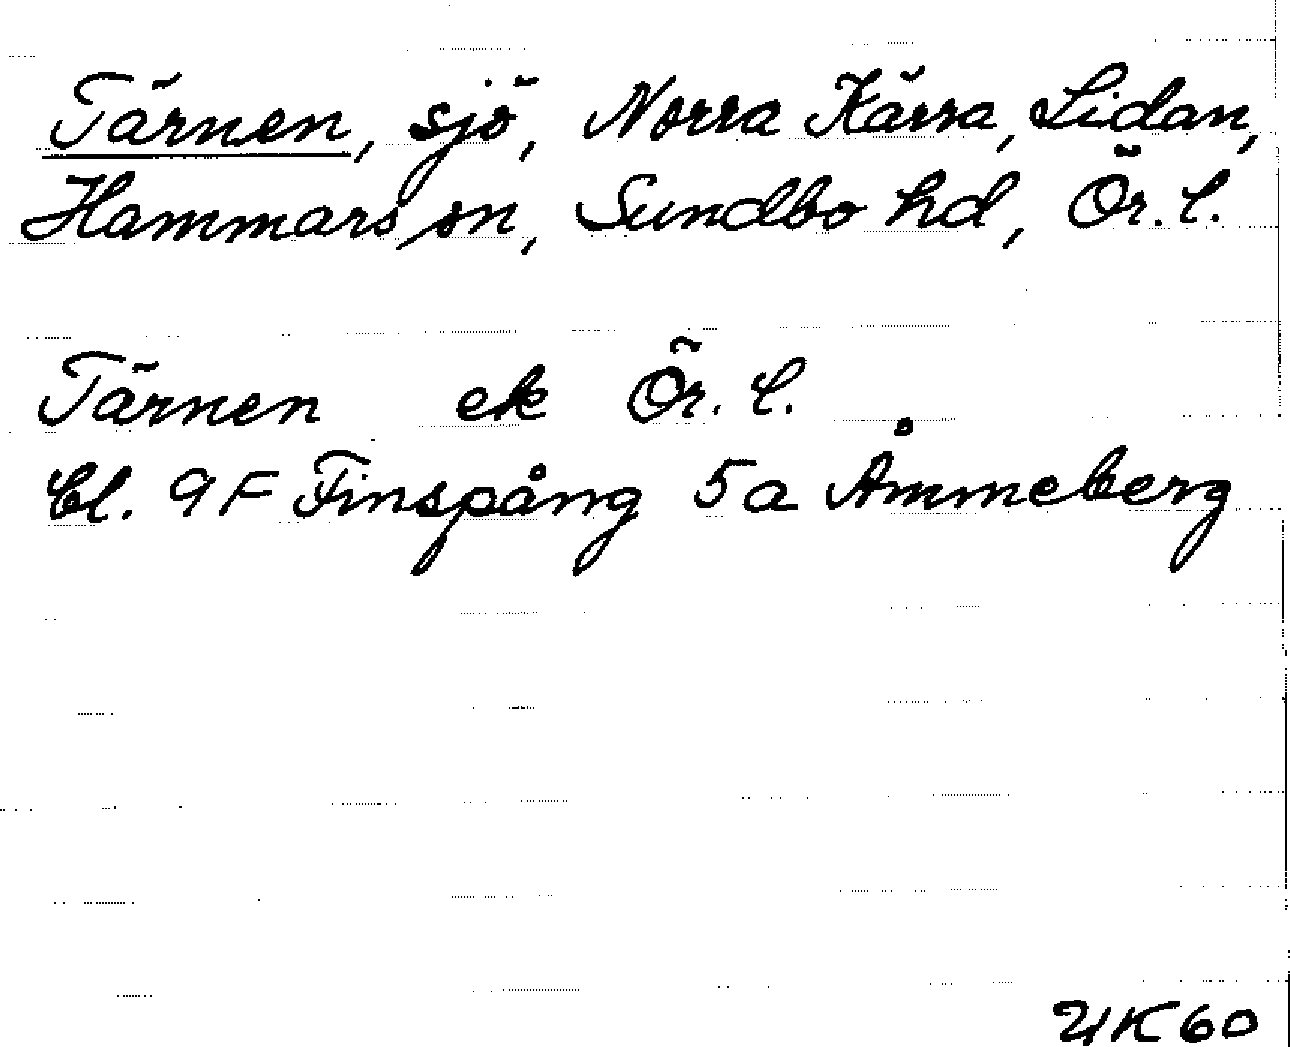 Tärnen, sjö, Norra Kärra, Lidan,
Hammars sn, Sundbo hd, Ör. l.
Tärnen ek Ör. l.
Bl. 9F Finspång 5a Åmmeberg
UK60